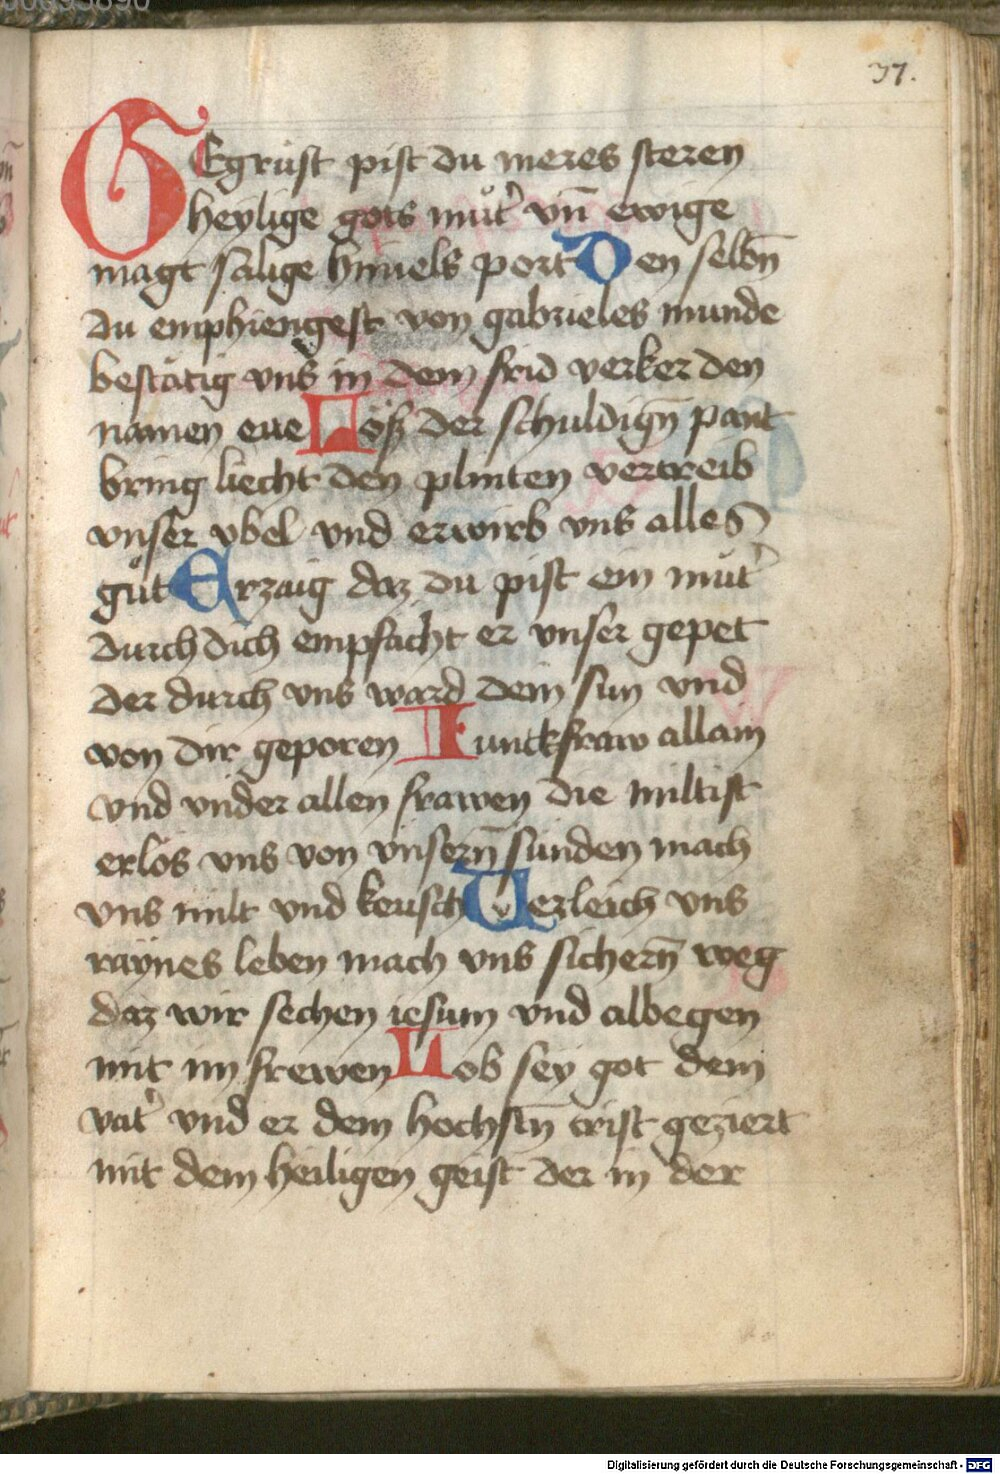 37.
GEgrust pist du meres steren
heylige gots můt' vn̄ ewige
magt sälige himels port Den selbn̄
du emphiengest von gabrieles munde
bestätig vns in dem frid verker den
namen eue Löß der schuldign̄ pant
bring liecht den plinten vertreib
vnser vbel vnd erwirb vns alles
gůt Erzaig daz du pist ein můt'
durch dich empfächt er vnser gepet
der durch vns ward dein sun vnd
von dir geporen Iunckfraw allain
vnd vnder allen frawen die miltist
erlös vns von vnsern̄ sünden mach
vns milt vnd keusch Verleich vns
raynes leben mach vns sichern̄ weg
daz wir sechen iesum vnd albegen
mit im frewen Lob sey got dem
vat' vnd er dem hochstn̄ crist geziert
mit dem heiligen geist der in der
Digitalisierung gefördert durch die Deutsche Forschungsgemeinschaft - DFG